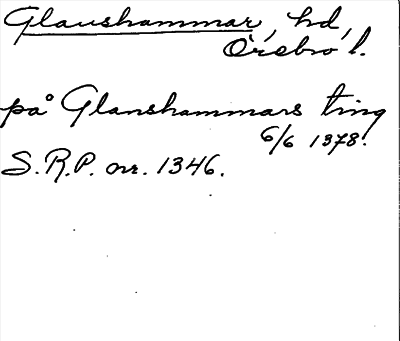 Glanshammar, hd,
Örebro l.
på Glanshammars ting
6/6 1378.
S.R.P. nr. 1346.